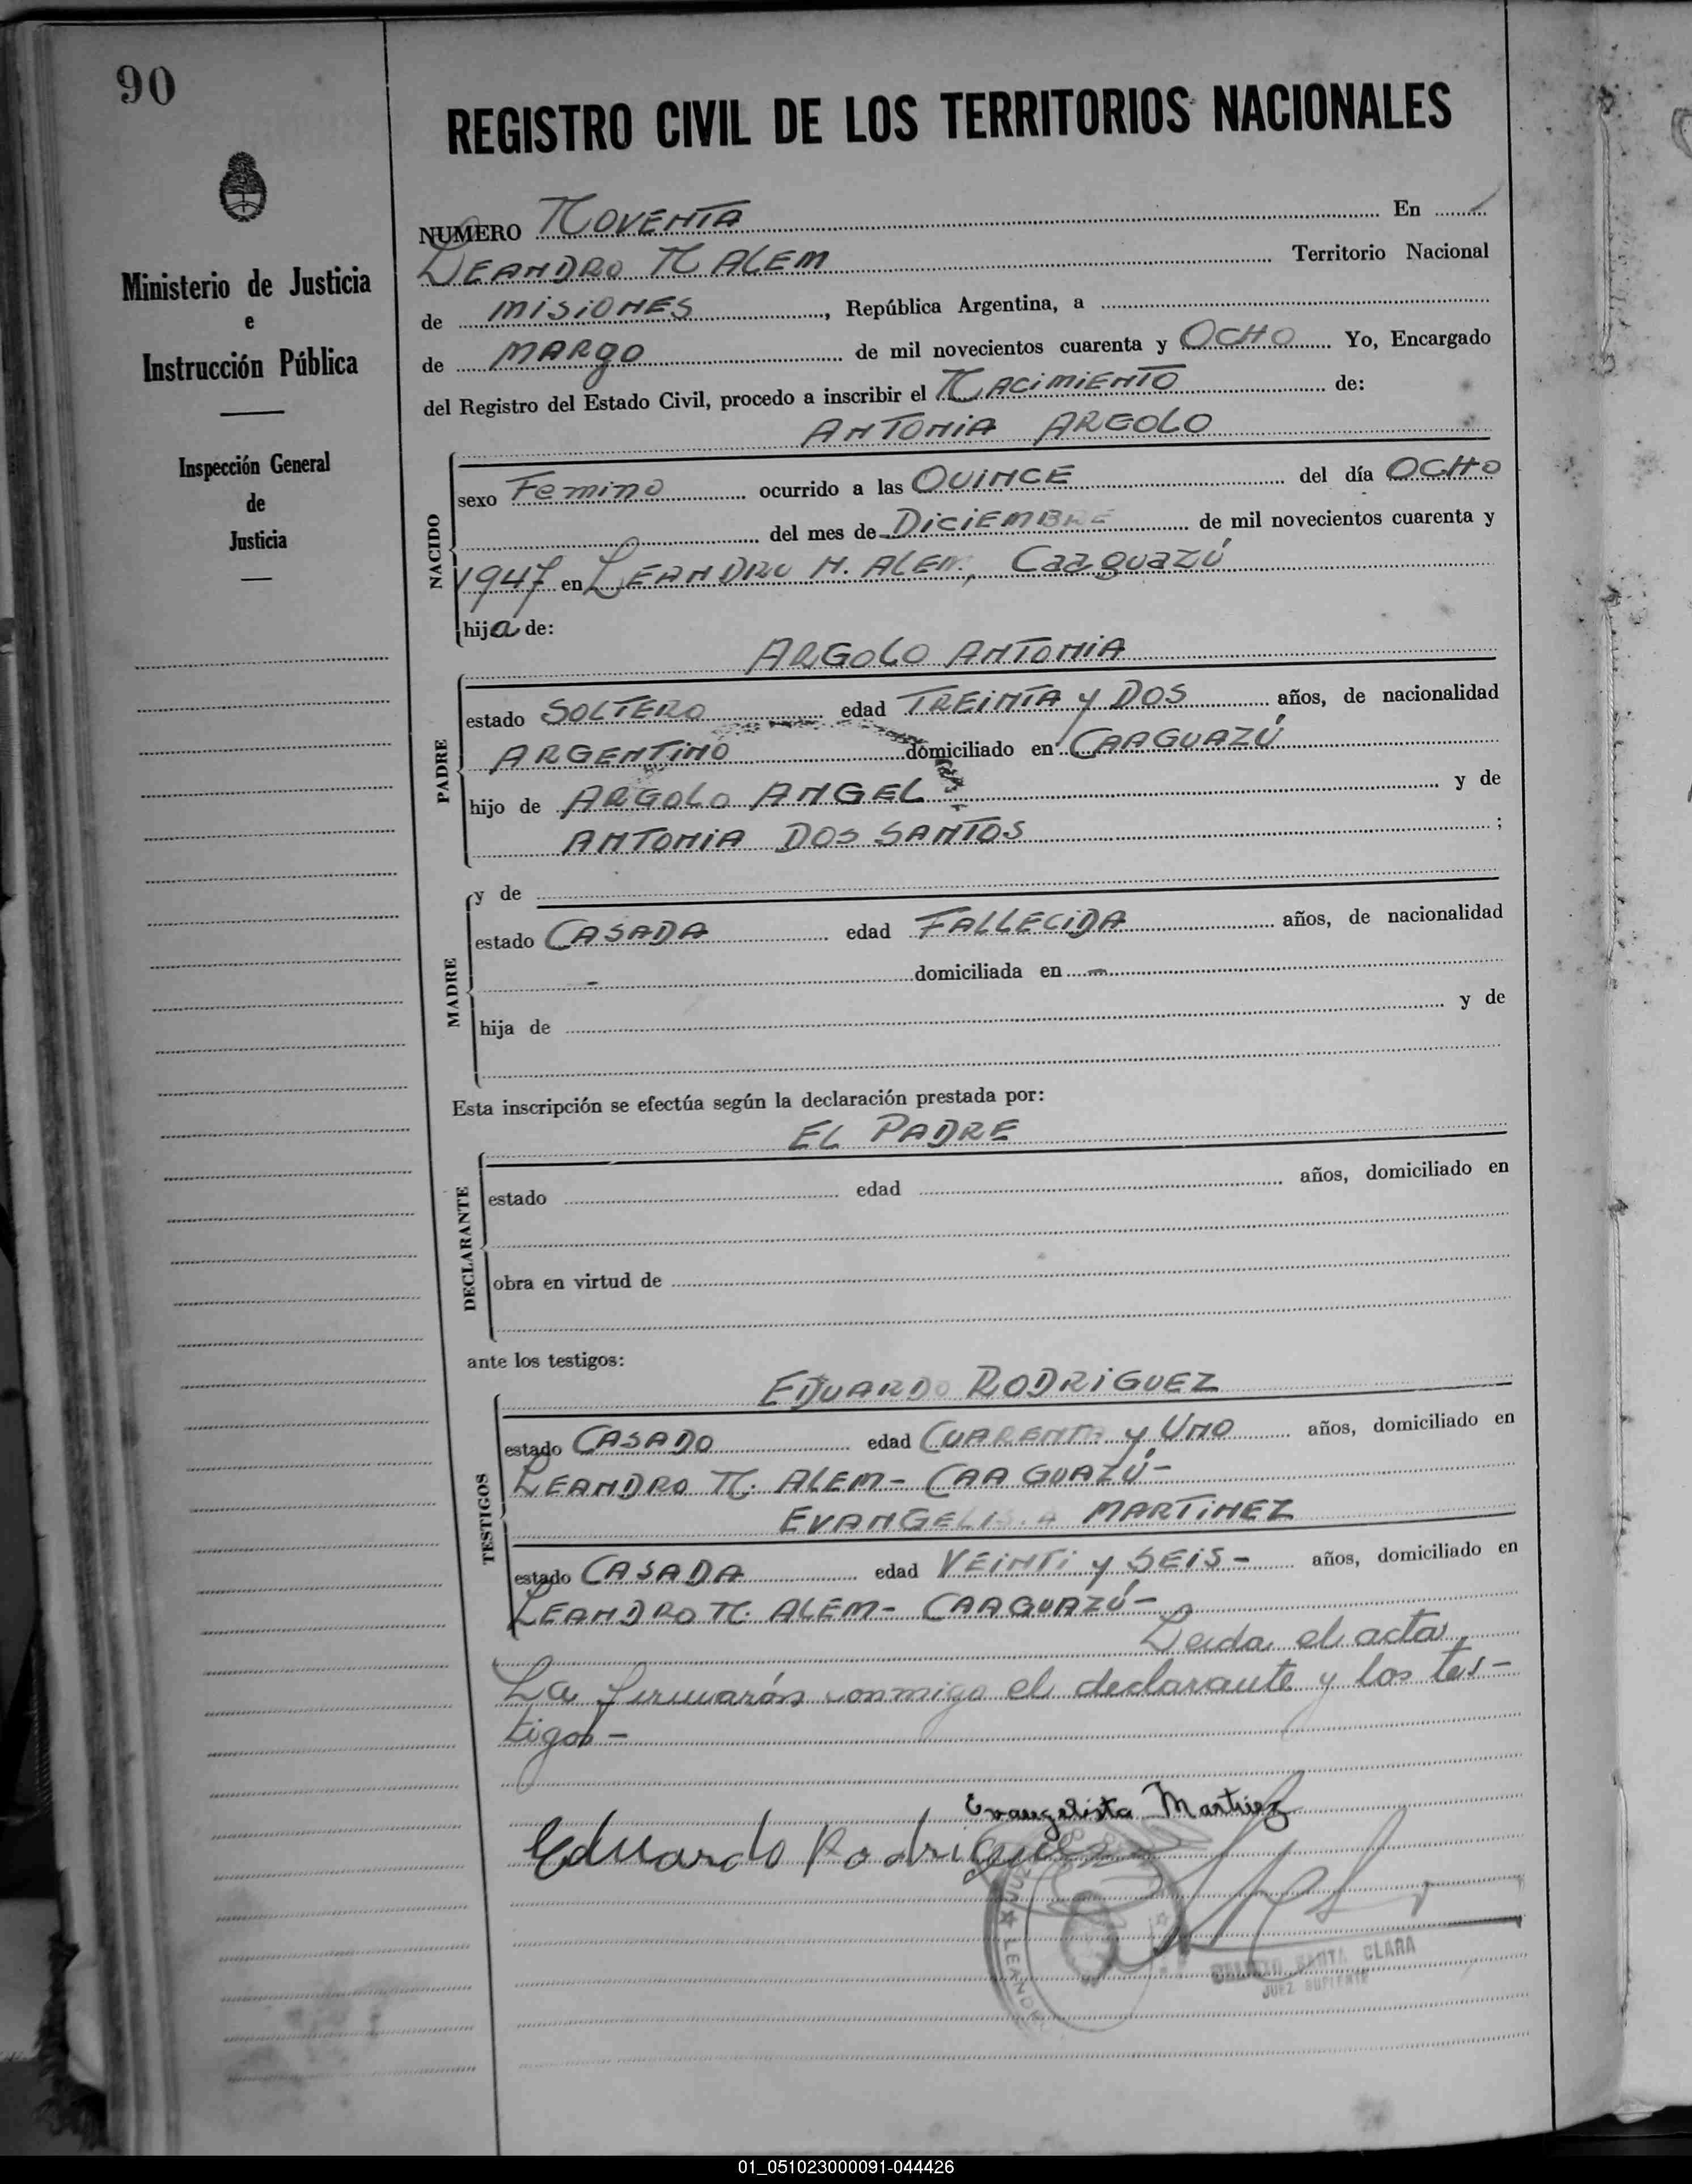 90
REGISTRO CIVIL DE LOS TERRITORIOS NACIONALES
Ministerio de Justicia
e
Instrucción Pública
Inspección General
de
Justicia
NUMERO NOVENTA En
LEANDRO N ALEM Territorio Nacional
de MISIONES, República Argentina, a
de MARZO de mil novecientos cuarenta y OCHO Yo, Encargado
del Registro del Estado Civil, procedo a inscribir el NACIMIENTO de:
ANTONIA ARGOLO
NACIDO
sexo Femino ocurrido a las QUINCE del día OCHO
del mes de DICIEMBRE de mil novecientos cuarenta y
1947 en LEANDRO N. ALEM, Caaguazú
hija de:
ARGOLO ANTONIA
PADRE
estado SOLTERO edad TREINTA y DOS años, de nacionalidad
ARGENTINO domiciliado en CAAGUAZÚ
hijo de ARGOLO ANGEL y de
ANTONIA DOS SANTOS ;
y de
MADRE
estado CASADA edad FALLECIDA años, de nacionalidad
- domiciliada en -
hija de y de
Esta inscripción se efectúa según la declaración prestada por:
EL PADRE
DECLARANTE
estado edad años, domiciliado en
obra en virtud de
ante los testigos:
EDUARDO RODRIGUEZ
TESTIGOS
estado CASADO edad CUARENTA y UNO años, domiciliado en
LEANDRO N. ALEM - CAAGUAZÚ -
EVANGELISTA MARTINEZ
estado CASADA edad VEINTI y SEIS - años, domiciliado en
LEANDRO N. ALEM - CAAGUAZÚ -
Leida el acta,
La firmarán conmigo el declarante y los tes-
tigos -
Evangelista Martinez
Eduardo Rodriguez
LEANDRO
SANTA CLARA
JUEZ SUPLENTE
01_051023000091-044426